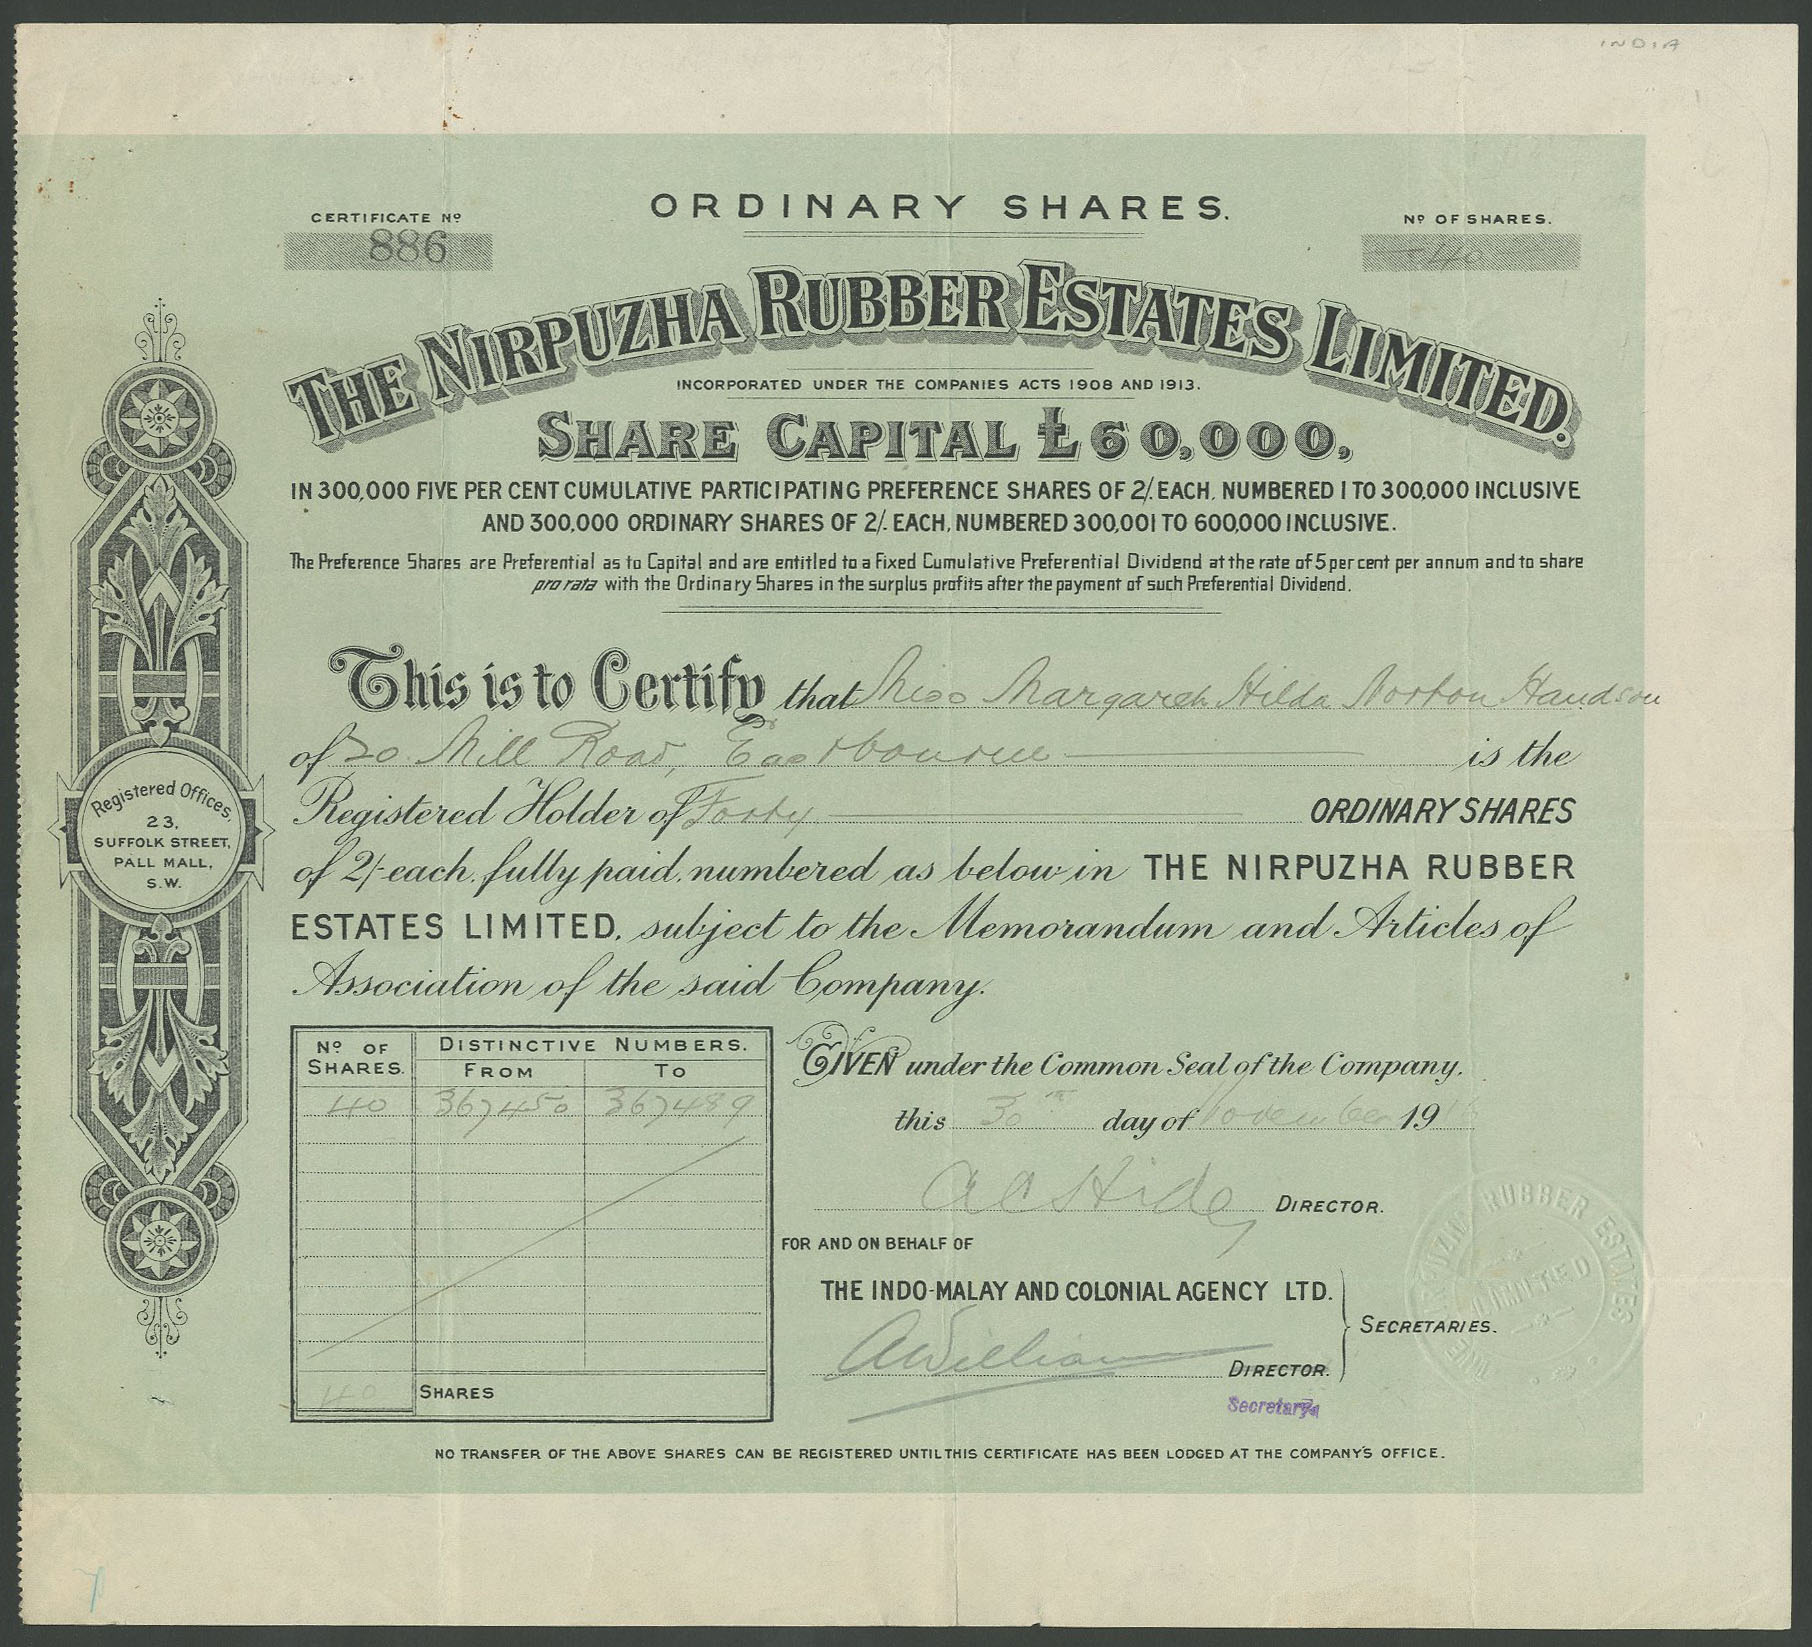 INDIA
ORDINARY SHARES.
CERTIFICATE Nº
886
Nº OF SHARES.
40
THE NIRPUZHA RUBBER ESTATES LIMITED.
INCORPORATED UNDER THE COMPANIES ACTS 1908 AND 1913.
SHARE CAPITAL £60,000,
IN 300,000 FIVE PER CENT CUMULATIVE PARTICIPATING PREFERENCE SHARES OF 2/- EACH, NUMBERED 1 TO 300,000 INCLUSIVE
AND 300,000 ORDINARY SHARES OF 2/- EACH, NUMBERED 300,001 TO 600,000 INCLUSIVE.
The Preference Shares are Preferential as to Capital and are entitled to a Fixed Cumulative Preferential Dividend at the rate of 5 per cent per annum and to share
pro rata with the Ordinary Shares in the surplus profits after the payment of such Preferential Dividend.
This is to Certify that Miss Margaret Hilda Norton
of 20 Mill Road, Eastbourne is the
Registered Holder of Forty ORDINARY SHARES
of 2/- each, fully paid, numbered as below in THE NIRPUZHA RUBBER
ESTATES LIMITED, subject to the Memorandum and Articles of
Association of the said Company.
Registered Offices,
23,
SUFFOLK STREET,
PALL MALL,
S.W.
Nº OF SHARES.
DISTINCTIVE NUMBERS.
FROM TO
40 367450 367489
40 SHARES
GIVEN under the Common Seal of the Company,
this 30th day of November 191
DIRECTOR.
FOR AND ON BEHALF OF
THE INDO-MALAY AND COLONIAL AGENCY LTD.
SECRETARIES.
A Williams
DIRECTOR.
Secretary
THE NIRPUZHA RUBBER ESTATES
LIMITED
NO TRANSFER OF THE ABOVE SHARES CAN BE REGISTERED UNTIL THIS CERTIFICATE HAS BEEN LODGED AT THE COMPANY'S OFFICE.